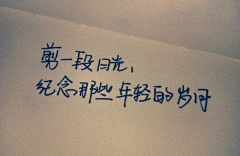 剪一段时光,
纪念那些年轻的岁月